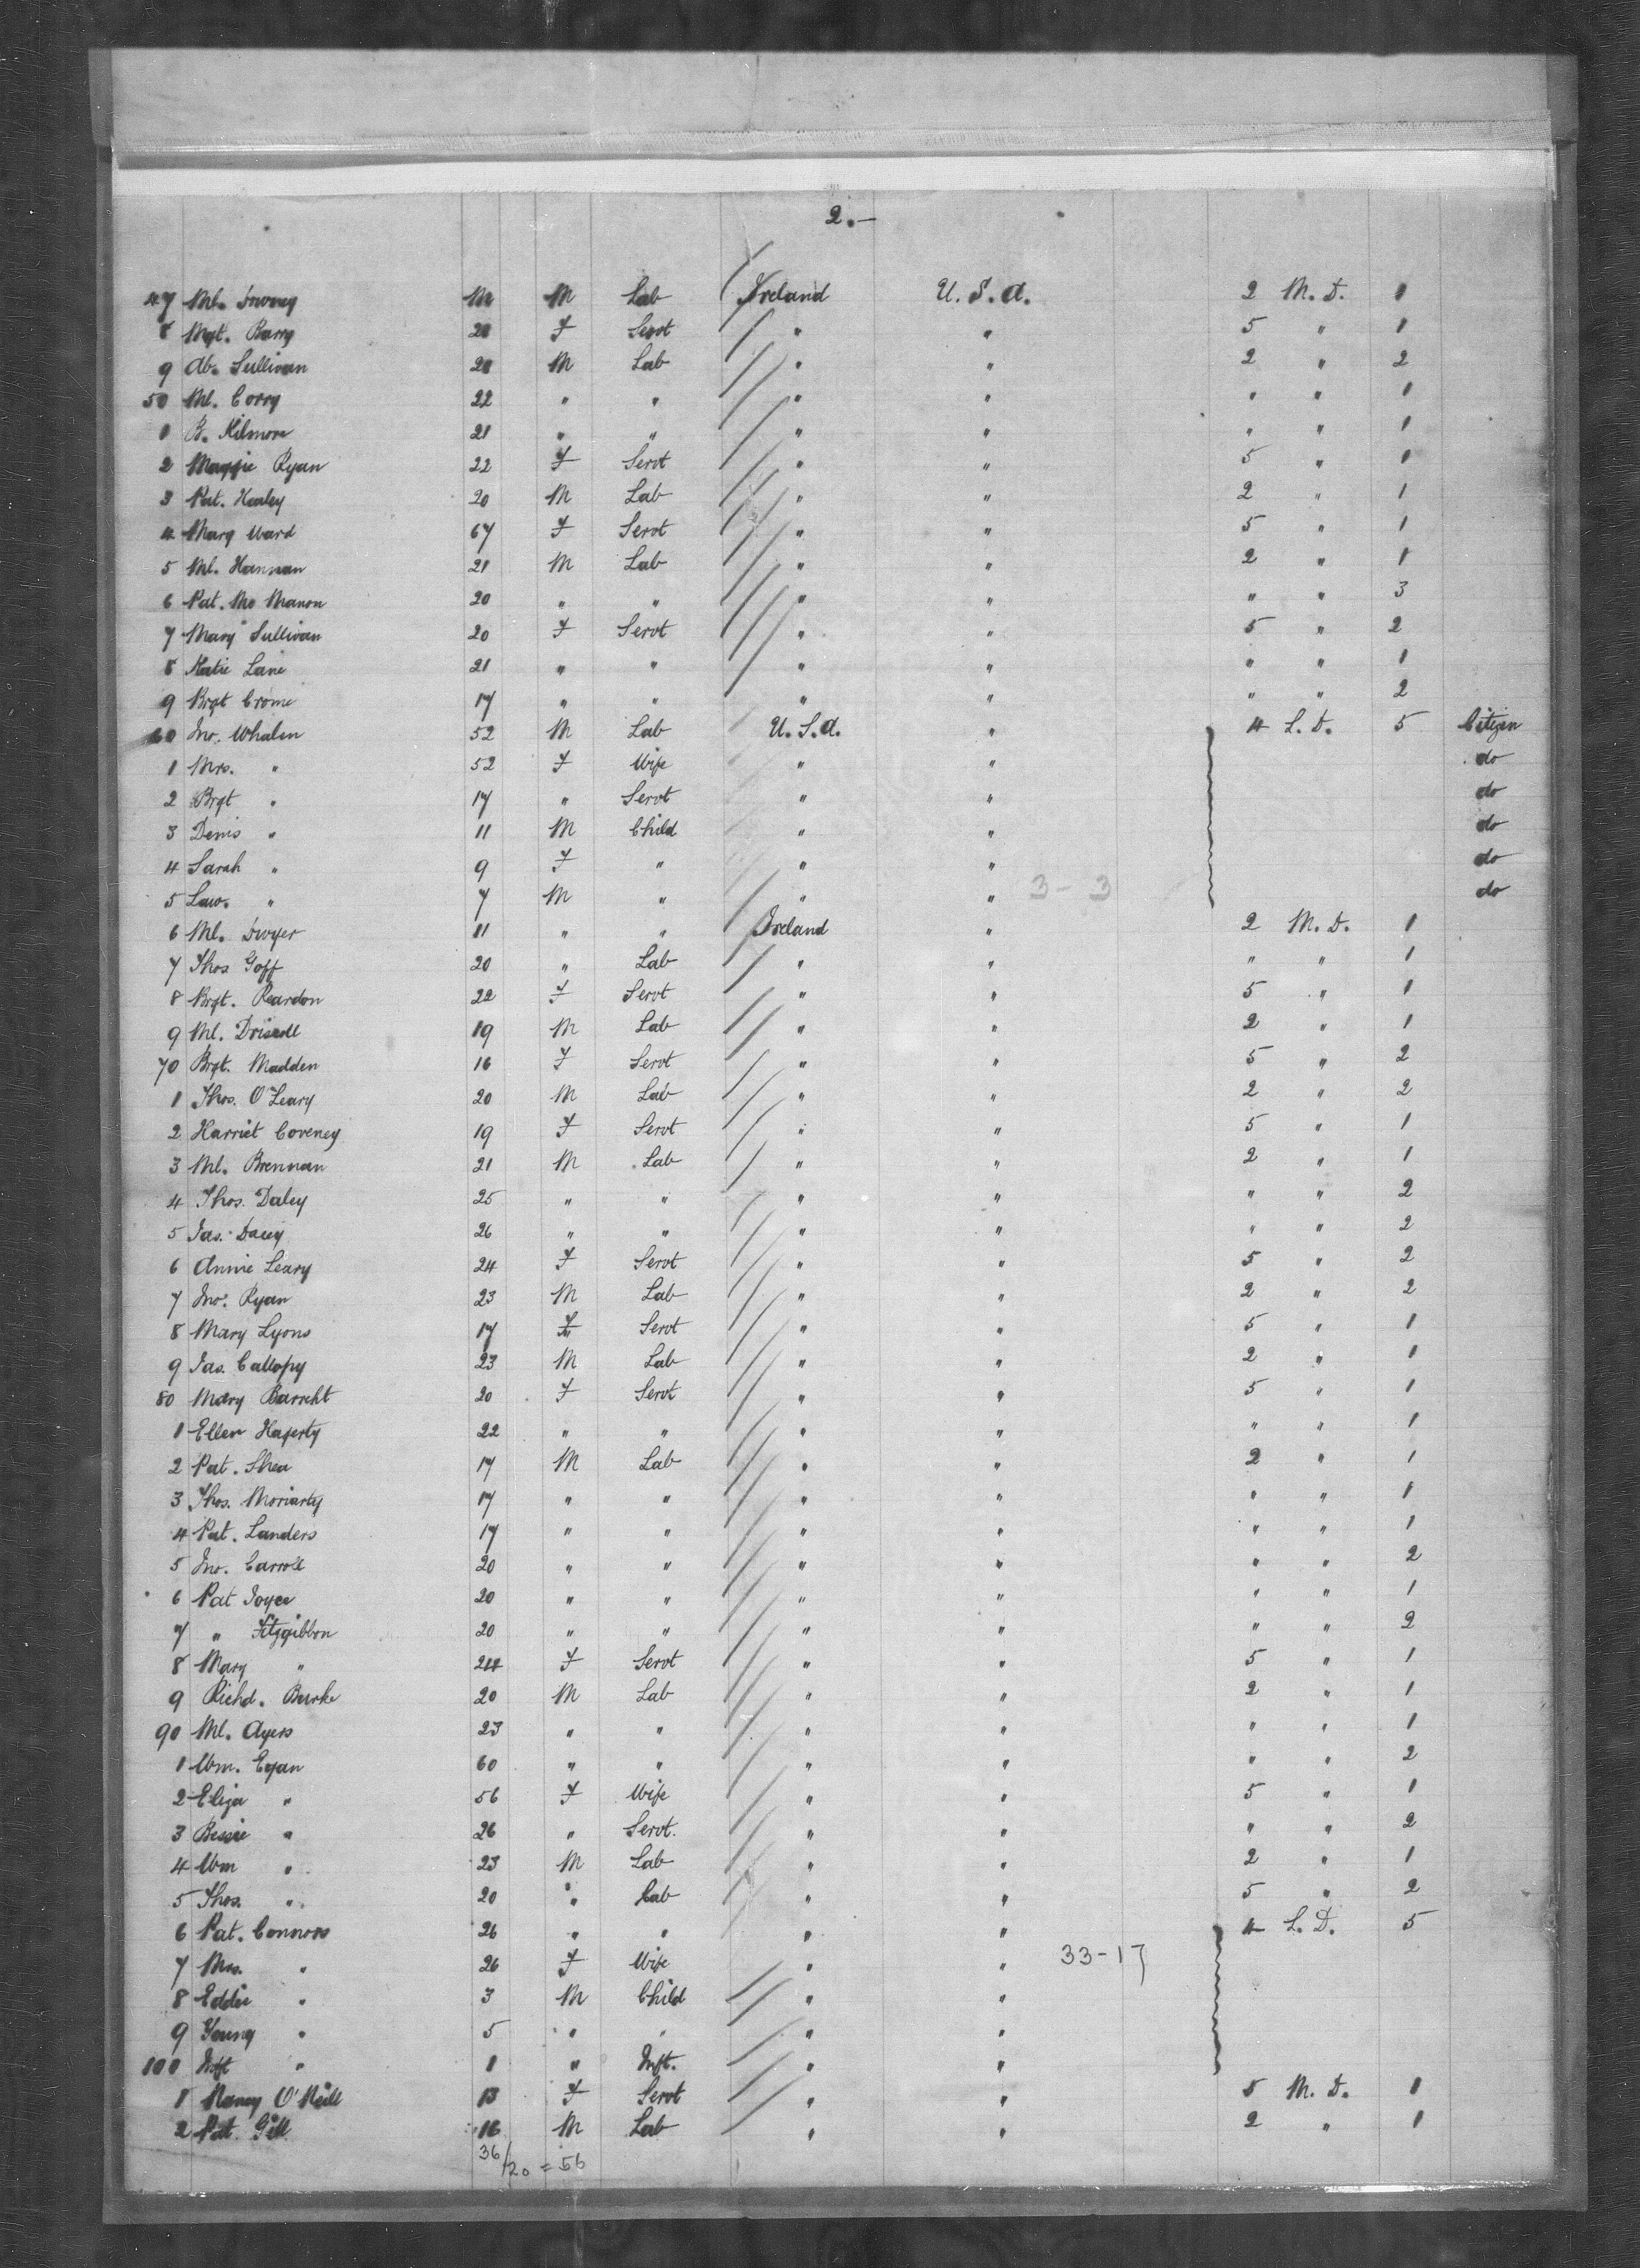 2.—
47 Ml. M Lab Ireland U.S.A. 2 M.D. 1
8 Mgt. Barry 20 F Servt " " 5 " 1
9 Ab. Sullivan 20 M Lab " " 2 " 2
50 Ml. Corry 22 " " " " " " 1
1 B. Kilmore 21 " " " " " " 1
2 Maggie Ryan 22 F Servt " " 5 " 1
3 Pat. Healey 20 M Lab " " 2 " 1
4 Mary Ward 67 F Servt " " 5 " 1
5 Ml. Hannan 21 M Lab " " 2 " 1
6 Pat. Mc Manon 20 " " " " " " 3
7 Mary Sullivan 20 F Servt " " 5 " 2
8 Katie Lane 21 " " " " " " 1
9 Brgt Crome 17 " " " " " " 2
60 Jno. Whalen 52 M Lab U.S.A. " 4 L.D. 5 Citizen
1 Mrs. " 52 F Wife " " do
2 Brgt " 17 " Servt " " do
3 Denis " 11 M Child " " do
4 Sarah " 9 F " " " do
5 Law. " 7 M " " " 3-3 do
6 Ml. Dwyer 11 " " Ireland " 2 M.D. 1
7 Thos Goff 20 " Lab " " " " 1
8 Brgt. Reardon 22 F Servt " " 5 " 1
9 Ml. Driscoll 19 M Lab " " 2 " 1
70 Brgt. Madden 16 F Servt " " 5 " 2
1 Thos. O'Leary 20 M Lab " " 2 " 2
2 Harriet Coveney 19 F Servt " " 5 " 1
3 Ml. Brennan 21 M Lab " " 2 " 1
4 Thos. Daley 25 " " " " " " 2
5 Jas. Dacey 26 " " " " " " 2
6 Annie Leary 24 F Servt " " 5 " 2
7 Jno. Ryan 23 M Lab " " 2 " 2
8 Mary Lyons 17 F Servt " " 5 " 1
9 Jas. Callopy 23 M Lab " " 2 " 1
80 Mary Barrett 20 F Servt " " 5 " 1
1 Ellen Hagerty 22 " " " " " " 1
2 Pat. Shea 17 M Lab " " 2 " 1
3 Thos. Moriarty 17 " " " " " " 1
4 Pat. Landers 17 " " " " " " 1
5 Jno. Carroll 20 " " " " " " 2
6 Pat Joyce 20 " " " " " " 1
7 " Fitzgibbon 20 " " " " " " 2
8 Mary " 24 F Servt " " 5 " 1
9 Richd. Burke 20 M Lab " " 2 " 1
90 Ml. Ayers 23 " " " " " " 1
1 Wm. Egan 60 " " " " " " 2
2 Eliza " 56 F Wife " " 5 " 1
3 Bessie " 26 " Servt. " " " " 2
4 Wm " 23 M Lab " " 2 " 1
5 Thos. " 20 " Lab " " 5 " 2
6 Pat. Connors 26 " " " " 4 L.D. 5
7 Mrs. " 26 F Wife " " 33-17
8 Eddie " 3 M Child " "
9 Young " 5 " " " "
100 Inft " 1 " Inft. " "
1 Nancy O'Neill 13 F Servt " " 5 M.D. 1
2 Pat. Gill 16 M Lab " " 2 " 1
36/20 = 56